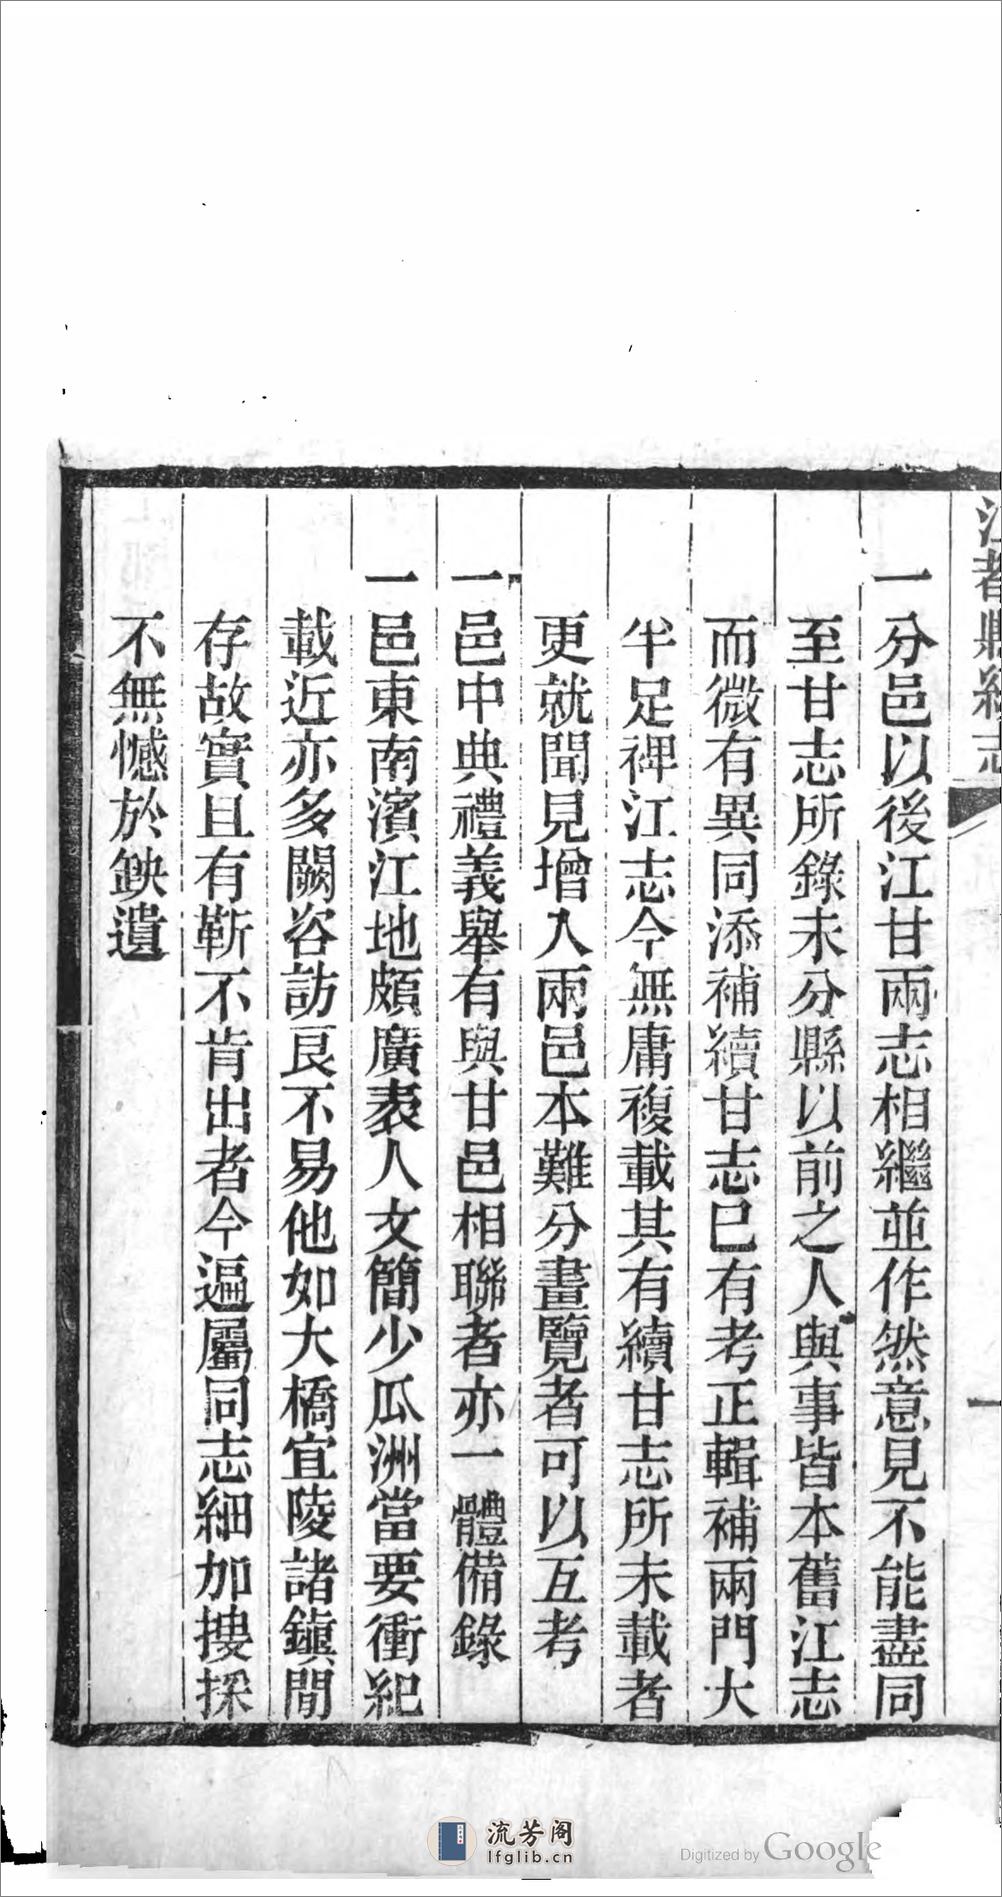 江都縣續志
一分邑以後江甘兩志相繼並作然意見不能盡同
至甘志所錄未分縣以前之人與事皆本舊江志
而微有異同添補續甘志已有考正輯補兩門大
半足裨江志今無庸複載其有續甘志所未載者
更就聞見增入兩邑本難分畫覽者可以互考
一邑中典禮義舉有與甘邑相聯者亦一體備錄
一邑東南濱江地頗廣袤人文簡少瓜洲當要衝紀
載近亦多闕咨訪良不易他如大橋宜陵諸鎭間
存故實且有靳不肯出者今遍屬同志細加搜採
不無憾於缺遺
一
流芳阁
lfglib.cn
Digitized by Google